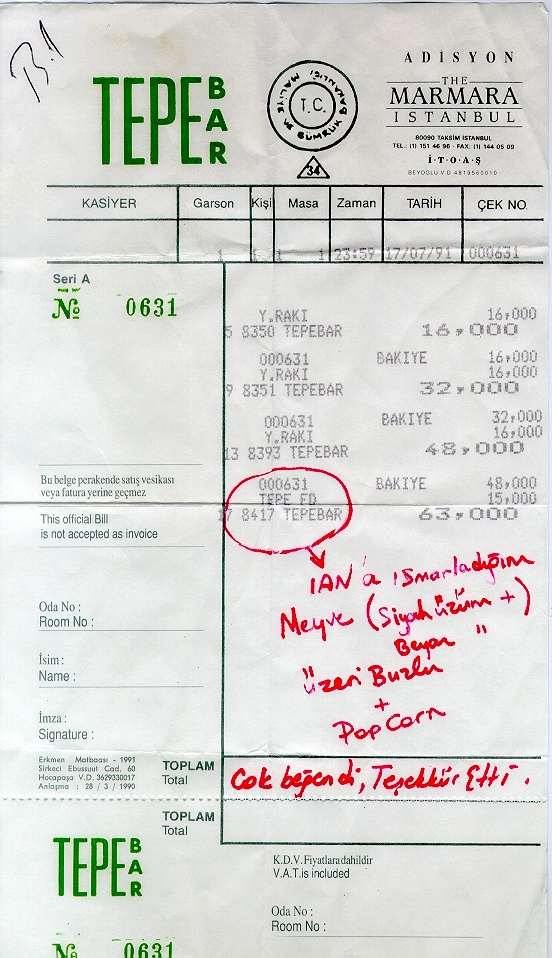 B.1
TEPE BAR
T.C.
MALİYE VE GÜMRÜK BAKANLIĞI
34
ADİSYON
THE
MARMARA
ISTANBUL
80090 TAKSİM İSTANBUL
TEL: (1) 151 46 96 - FAX: (1) 144 05 09
İ·T·O·A·Ş
BEYOĞLU V.D 4819560010
KASİYER Garson Kişi Masa Zaman TARİH ÇEK NO.
1 1 1 1 23:59 17/07/91 000631
Seri A
No 0631
Y.RAKI 16,000
5 8350 TEPEBAR 16,000
000631 BAKIYE 16,000
Y.RAKI 16,000
9 8351 TEPEBAR 32,000
000631 BAKIYE 32,000
Y.RAKI 16,000
13 8393 TEPEBAR 48,000
000631 BAKIYE 48,000
TEPE FD 15,000
17 8417 TEPEBAR 63,000
Bu belge perakende satış vesikası
veya fatura yerine geçmez
This official Bill
is not accepted as invoice
IAN'a ısmarladığım
Meyve (Siyah üzüm +)
Beyaz "
üzeri Buzlu
+
PopCorn
Oda No :
Room No :
İsim :
Name :
İmza :
Signature :
Erkmen Matbaası - 1991
Sirkeci Ebussuut Cad. 60
Hocapaşa V.D. 3629330017
Anlaşma : 28 / 3 / 1990
TOPLAM
Total
Çok beğendi, Teşekkür Etti.
TOPLAM
Total
TEPE BAR
K.D.V. Fiyatlara dahildir
V.A.T. is included
Oda No :
Room No :
No 0631